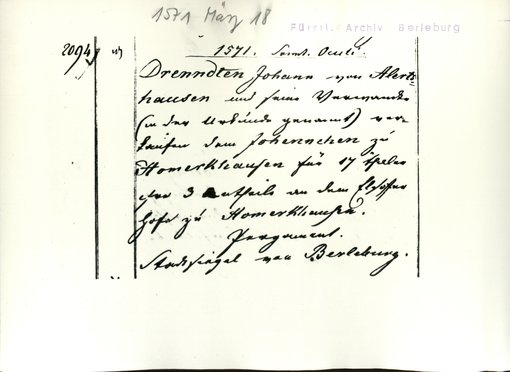 1571 März 18
Fürstl. Archiv Berleburg
2094
1571. Sonnt. Oculi.
Drenndten Johann von Alerts
hausen und seine Verwandte
(in der Urkunde genannt) ver
kaufen dem Johennchen zu
Homerkhausen für 17 thaler
ihr 3 antheils an dem
hofe zu Homerkhausen.
Pergament.
Stadtsiegel von Berleburg.